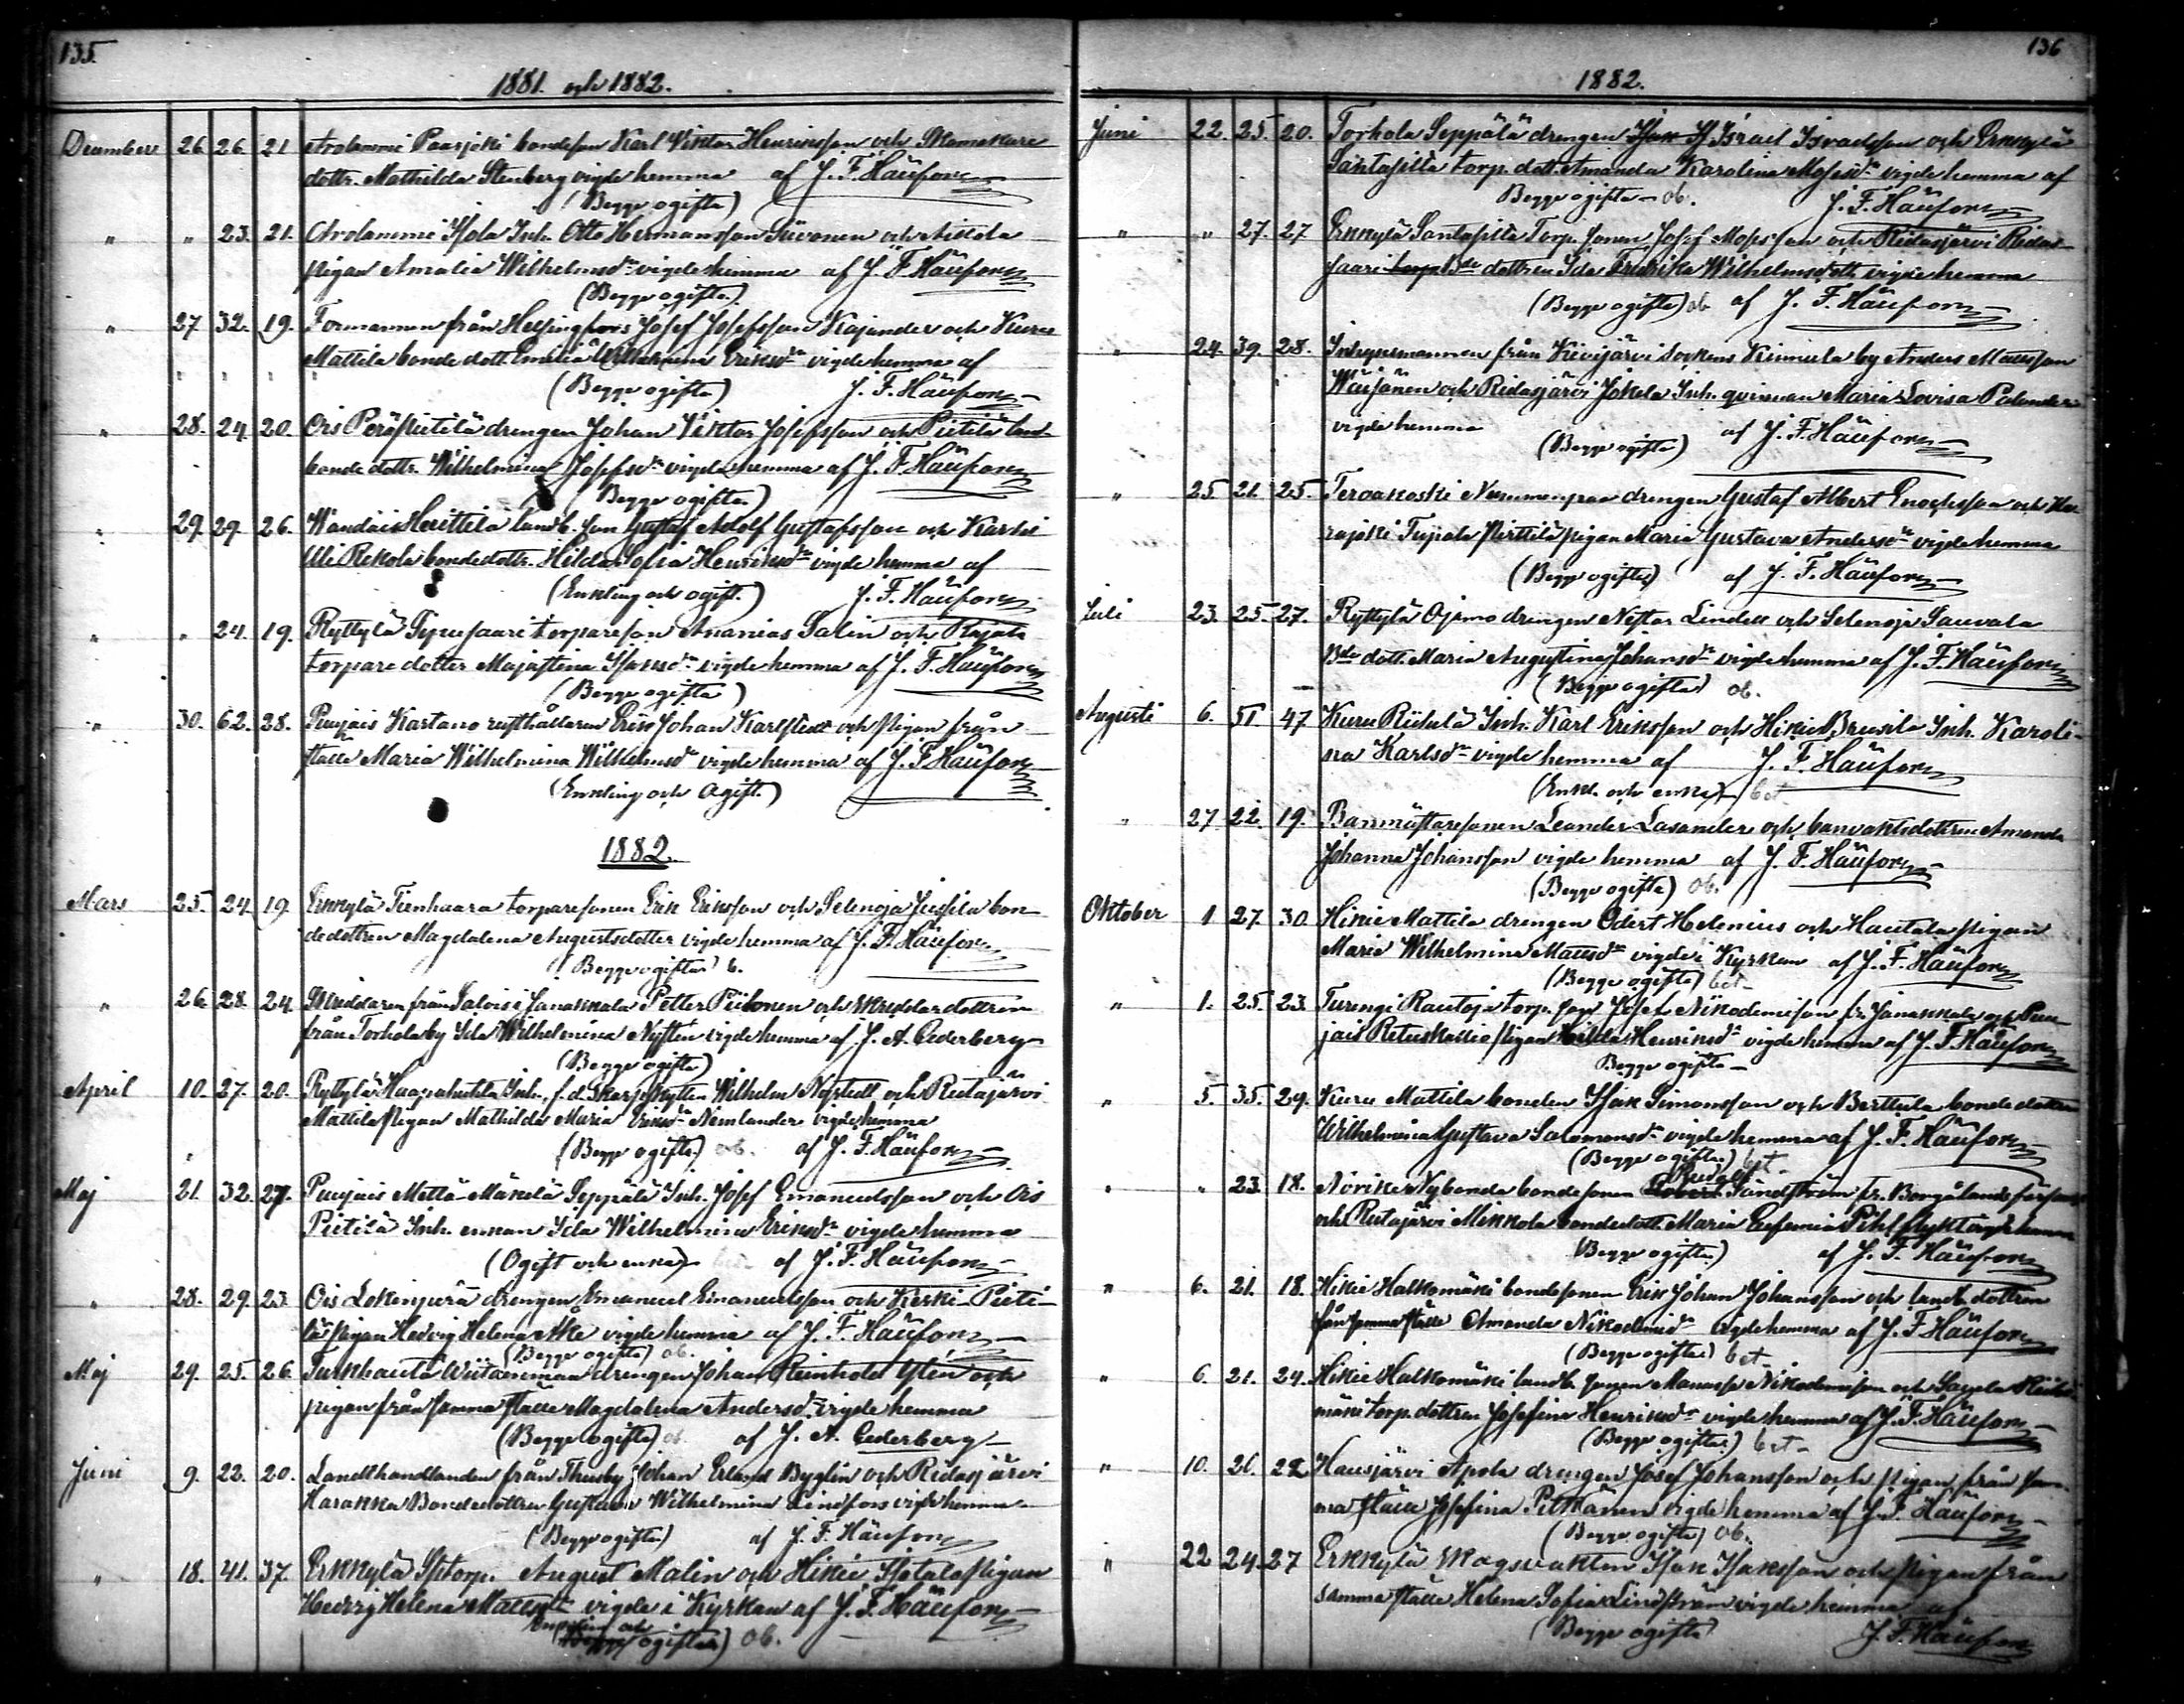 135.
1881. och 1882.
December 26 26 21 Arolammi Paasjoki bondeson Karl Viktor Henriksson och Skomakare
dottr. Mathilda Stenberg vigde hemma af J. F. Häüfors
(Begge ogifta)
" " 23. 21. Arolammi Isola Inh. Otto Hermansson Siivonen och
pigan Amalia Wilhelmsdr vigde hemma af J. F. Häüfors
(Begge ogifta)
" 27 32. 19. Formannen från Helsingfors Josef Josefsson Kajander och Kuru
Mattila bonde dott. Emilia Wilhelmina Eriksdr vigde hemma af
(Begge ogifta) J. F. Häüfors
" 28. 24. 20. Ois Peräpietilä drengen Johan Viktor Josefsson och Pietilä land-
bonde dottr. Wilhelmina Josefsdr vigde hemma af J. F. Häüfors
Begge ogifta)
" 29. 29. 26. Herittilä landb. son Gustaf Adolf Gustafsson och Karhi
Uli Rekola bondedottr. Hilda Sofia Henriksdr vigde hemma af
(Enkling och ogift.) J. F. Häüfors
" " 24. 19. Ryttylä torpareson Ananias Salin och
torpare dotter Majastina Isaksdr vigde hemma af J. F. Häüfors
(Begge ogifta)
" 30. 62. 28. Puujais Kartano rusthållaren Erik Johan Karlstedt och pigan från
ställe Maria Wilhelmina Wilhelmsdr vigde hemma af J. F. Häüfors
(Enkling och ogift.)
1882.
Mars 25. 24. 19. Erkkylä Tienhaara torparesonen Erik Eriksson och Selenoja Jussila bon-
dedottren Magdalena Augustsdotter vigde hemma af J. F. Häüfors
Begge ogifta) b.
" 26. 28. 24. Skreddaren från Salois i Janakkala Petter Piitonen och skreddardottren
från Torhola by Ida Wilhelmina Nyftén vigde hemma af J. A. Cederberg
(Begge ogifta)
April 10. 27. 20. Ryttylä Haapahuhta Inh. f. d. Skarpskytten Wilhelm Nystedt och Ridasjärvi
Mattila pigan Mathilda Maria Eriksdr Nemlander vigde hemma
(Begge ogifta) ob. af J. F. Häüfors
Maj 21. 32. 27. Puujais Mettä-Mäkelä Seppälä Inh. Josef Emanuelsson och Ois
Pietilä Inh. enkan Ida Wilhelmina Eriksdr vigde hemma
(Ogift och enka) af J. F. Häüfors
" 28. 29. 23. Ois drengen Emanuel Emanuelsson och Keski-Pieti-
lä pigan Hedvig Helena vigde hemma af J. F. Häüfors
(Begge ogifta) ob.
Maj 29. 25. 26. Turkhauta drengen Johan Reinhold Ylén och
pigan från samma ställe Magdalena Andersdr vigde hemma
(Begge ogifta) ob. af J. A. Cederberg
Juni 9. 22. 20. Landthandlanden från Thusby Johan Erland Byglin och Ridasjärvi
Harakka Bondedottren Gustava Wilhelmina Lindfors vigde hemma
(Begge ogifta) af J. F. Häüfors
" 18. 41. 37. Erkkylä Sptorp. August Malin och Hikiä pigan
Hedvig Helena Mattsdr vigde i Kyrkan af J. F. Häüfors
Enkling och
ogifta) ob.
136
1882.
Juni 22. 25. 20. Torhola Seppälä drengen Israel Israelsson och Erkkylä
Santapilta torp. dott. Amanda Karolina Mosisdr vigde hemma af
Begge ogifta - ob. J. F. Häüfors
" " 27. 27 Erkkylä Santapilta Torp. sonen Josef Mosisson och Ridasjärvi Ridas-
saari Bde dottren Ida Fredrika Wilhelmsdott. vigde hemma
(Begge ogifta) ob af J. F. Häüfors
" 24. 39. 28. Inhysesmannen från Kivijärvi Sockens Kinnula by Anders Mattsson
Wäisänen och Ridasjärvi Jokela Inh. qvinnan Maria Lovisa Palander
vigde hemma (Begge ogifta) af J. F. Häüfors
" 25 21. 25. Tervakoski drengen Gustaf Albert Enochsson och Ha-
rajoki Pirttilä pigan Maria Gustava Andersdr vigde hemma
(Begge ogifta) af J. F. Häüfors
Juli 23. 25. 27. Ryttylä Ojamo drengen Neftar Lindell och Selenoja Sauvala
Bde dott. Maria Augustina Johansdr vigde hemma af J. F. Häüfors
(Begge ogifta) ob.
Augusti 6. 51 47 Kuru Riihelä Inh. Karl Eriksson och Hikiä Brusila Inh. Karoli-
na Karlsdr vigde hemma af J. F. Häüfors
(Enkl. och enka) - bet
" 27 22. 19. Banmästaresonen Leander Lasander och banvaktsdottren Amanda
Johanna Johansson vigde hemma af J. F. Häüfors
(Begge ogifta) ob.
Oktober 1 27. 30. Hikiä Mattila drengen Odert Helenius och Hautala pigan
Maria Wilhelmina Mattsdr vigde i Kyrkan af J. F. Häüfors
(Begge ogifta) bet
" 1. 25. 23. Turengi Rautoja torp. son Josef Nikodemisson fr. Janakkala och Puu-
jais Retuskallio pigan Hilda Henriksdr vigde hemma af J. F. Häüfors
Begge ogifta -
" 5. 35. 29. Kuru Mattila bonden Isak Simonsson och Berttula bondedotter
Wilhelmina Gustava Salomonsdr vigde hemma af J. F. Häüfors
(Begge ogifta) bet
" " 23. 18. Nybonda bondesonen Rudolf Sandström fr. Borgå landsförsaml.
och Ridasjärvi Mikkola bondedott. Maria Eufemia vigde hemma
(Begge ogifta) af J. F. Häüfors
" 6. 21. 18. Hikiä Halkomäki bondesonen Erik Johan Johansson och landb. dottren
från samma ställe Amanda Nikodemidr vigde hemma af J. F. Häüfors
(Begge ogifta) bet
" 6. 21. 24. Hikiä Halkomäki landb. sonen Manasse Nikodemisson och
mäki torp. dottren Josefina Henriksdr vigde hemma af J. F. Häüfors
(Begge ogifta) bet -
" 10. 21. 22 Hausjärvi drengen Josef Johansson och pigan från sam-
ma ställe Josefina Pitkänen vigde hemma af J. F. Häüfors
(Begge ogifta) ob.
" 22 24. 27 Erkkylä Skogsvakten Isak Isaksson och pigan från
samma ställe Helena Sofia Lindström vigde hemma af
(Begge ogifta) J. F. Häüfors